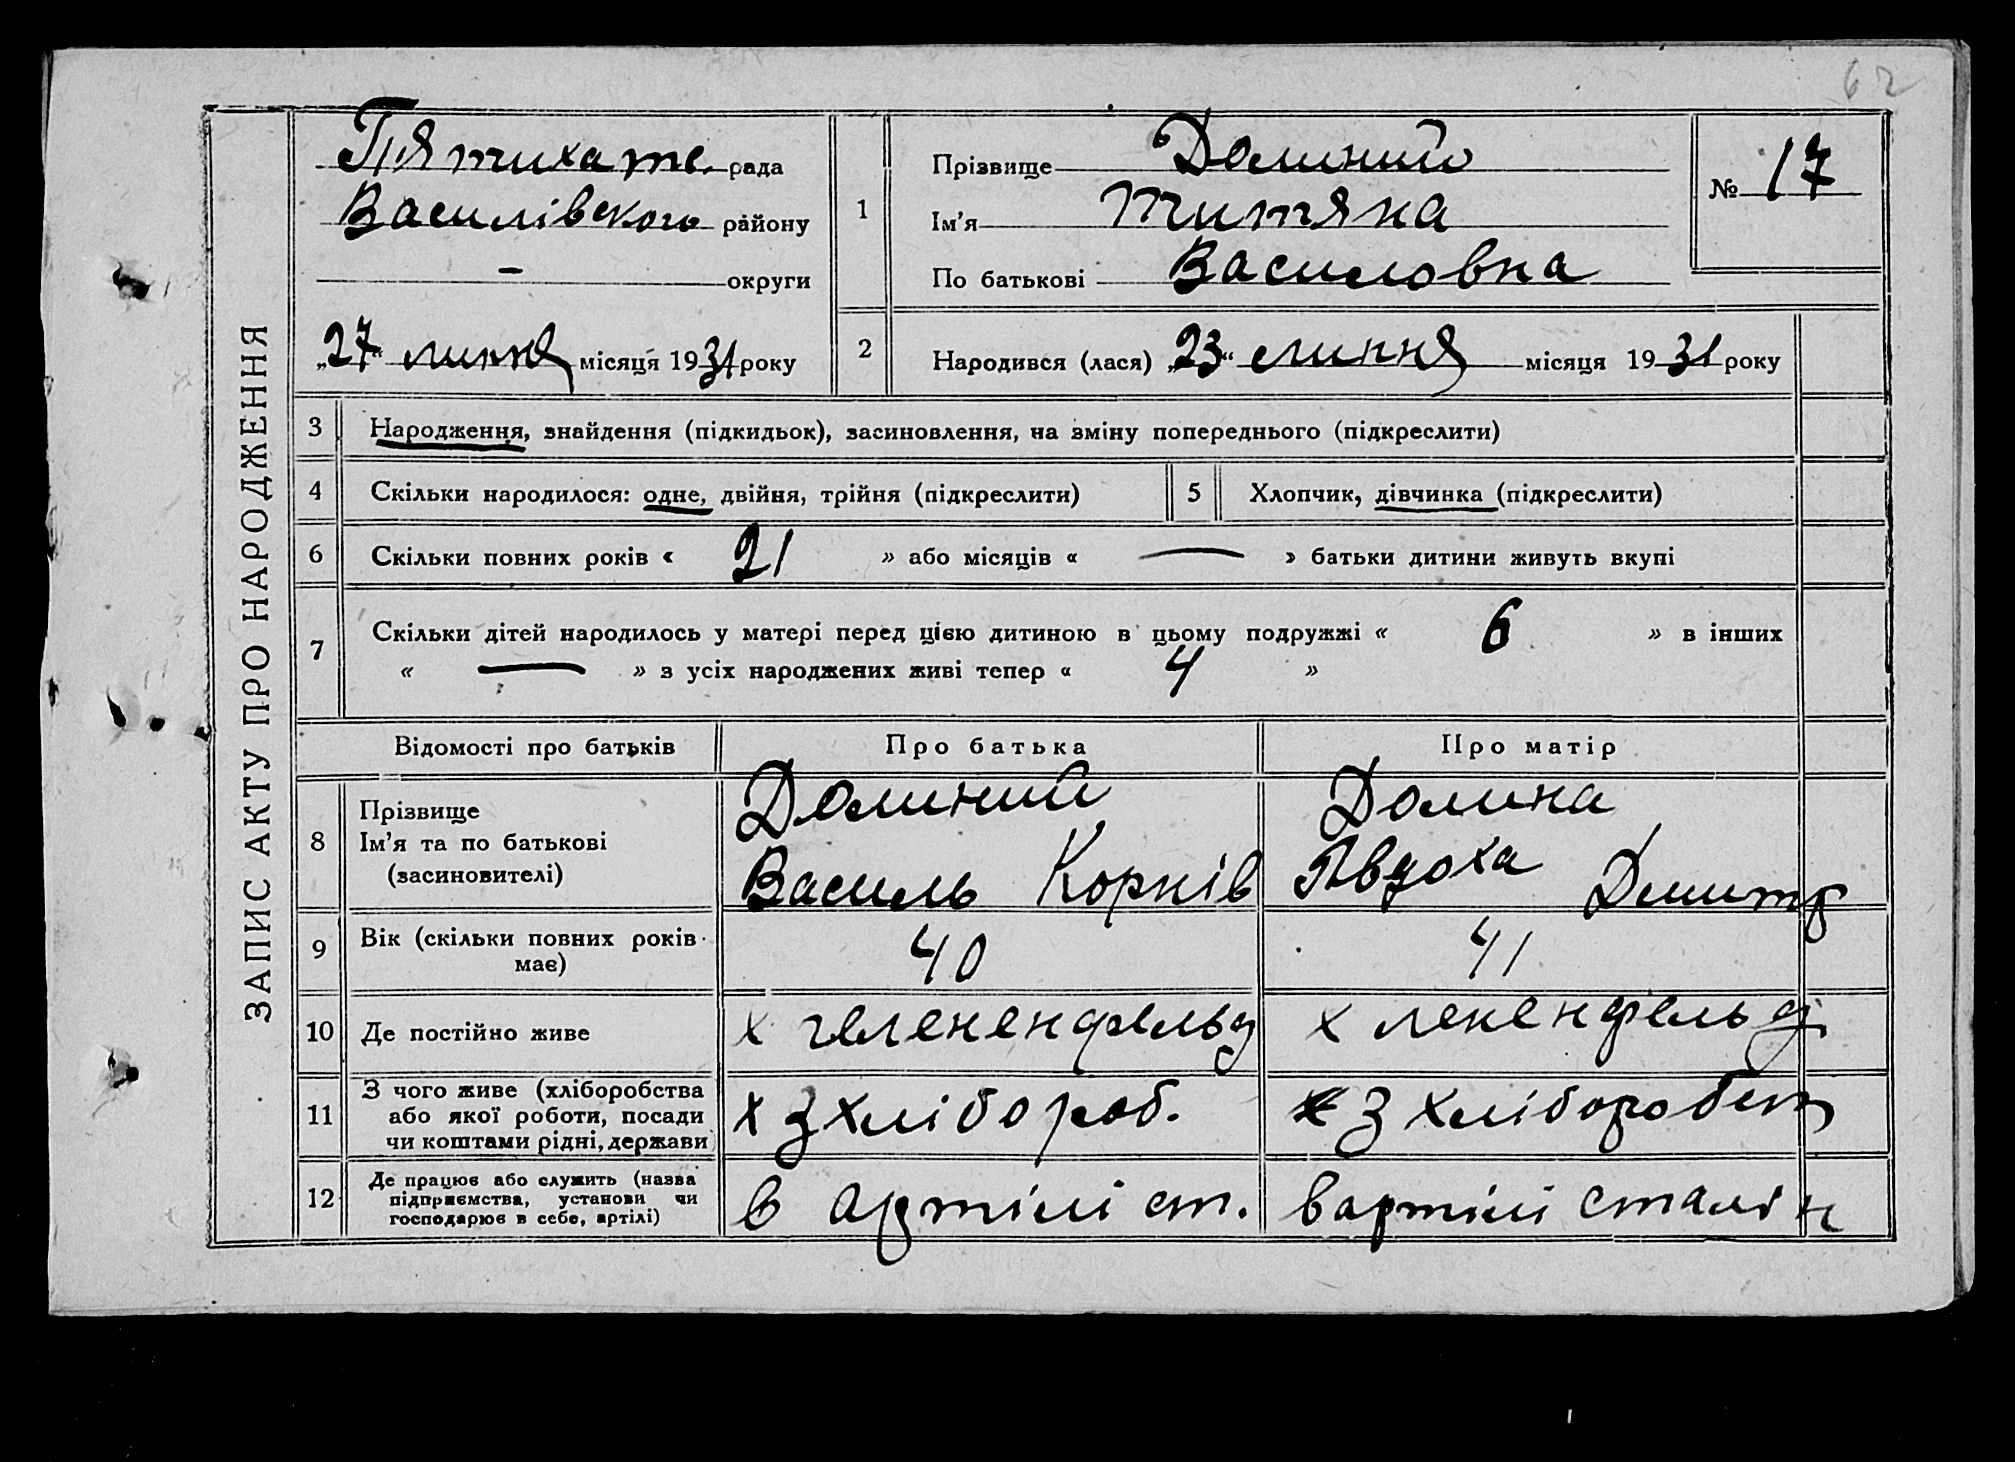 62
ЗАПИС АКТУ ПРО НАРОДЖЕННЯ
Пятихатс. рада
Василівского району
- округи
„27“ липня місяця 1931 року
1
Прізвище Долиний
Ім'я Титяна
По батькові Василовна
№ 17
2
Народився (лася) „23“ липня місяця 1931 року
3 Народження, знайдення (підкидьок), засиновлення, на зміну попереднього (підкреслити)
4 Скільки народилося: одне, двійня, трійня (підкреслити) 5 Хлопчик, дівчинка (підкреслити)
6 Скільки повних років « 21 » або місяців « — » батьки дитини живуть вкупі
7 Скільки дітей народилось у матері перед цією дитиною в цьому подружжі « 6 » в інших
« — » з усіх народжених живі тепер « 4 »
Відомості про батьків Про батька Про матір
8 Прізвище
Ім'я та по батькові
(засиновителі)
Долиний
Василь Корнів
Долина
Явдоха Дмитр
9 Вік (скільки повних років
має)
40 41
10 Де постійно живе х геленендфельд х лененфельд
11 З чого живе (хліборобства
або якої роботи, посади
чи коштами рідні, держави
х з хлібороб. з хліборобст
12 Де працює або служить (назва
підприємства, установи чи
господарює в себе, артілі)
в артілі ст. в артілі сталін